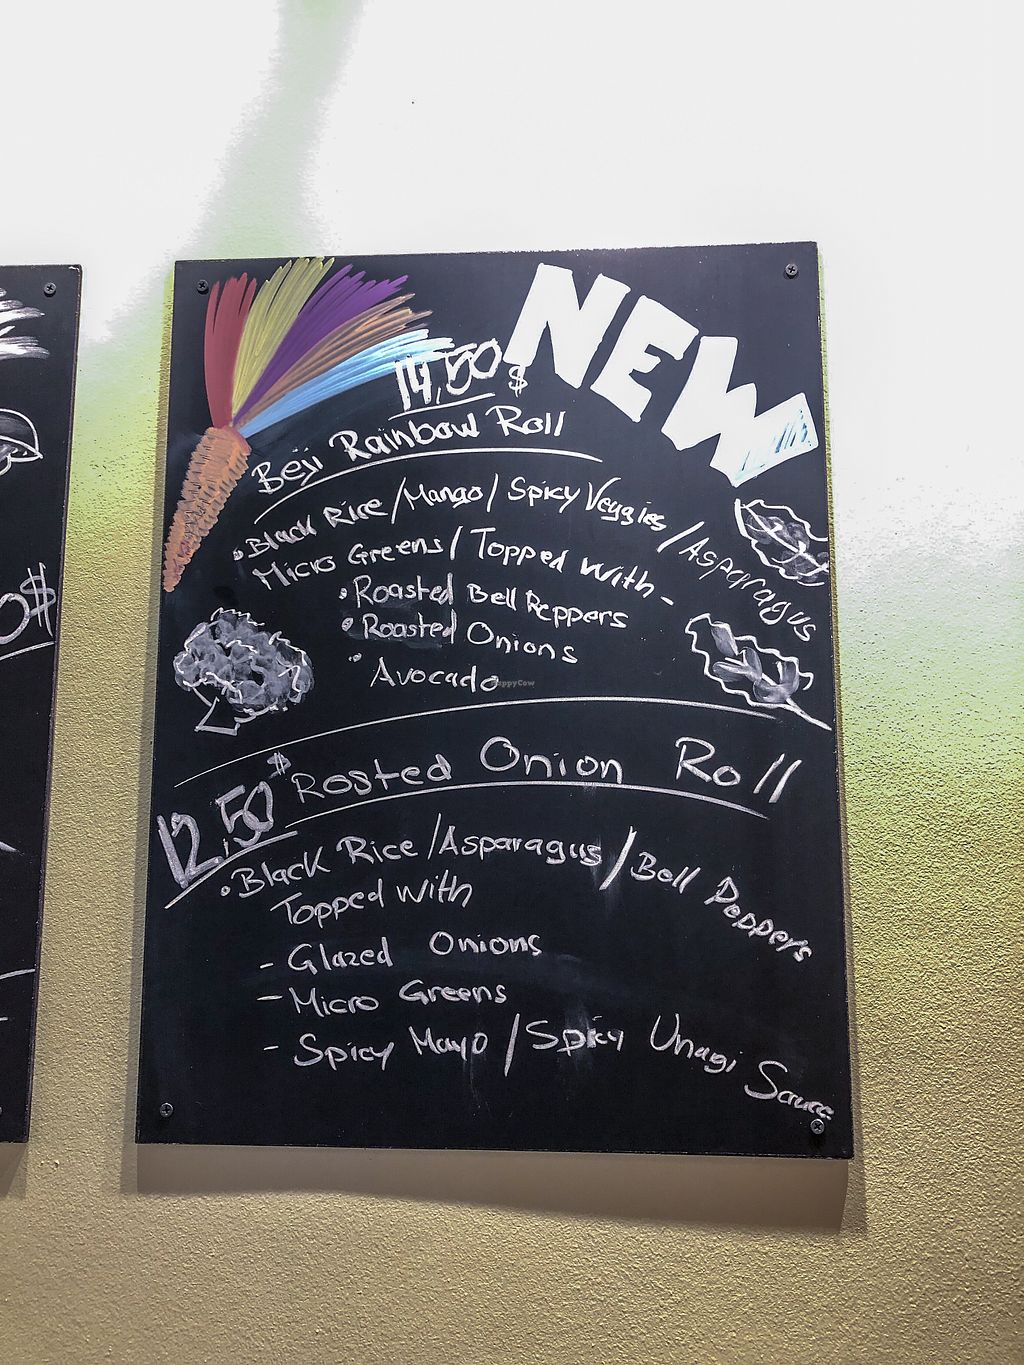 NEW
14,50 $
Beji Rainbow Roll
• Black Rice / Mango / Spicy Veggies / Asparagus
Micro Greens / Topped with -
• Roasted Bell Peppers
• Roasted Onions
• Avocado
HappyCow
12,50 $
Rosted Onion Roll
• Black Rice / Asparagus / Bell Peppers
Topped with
- Glazed Onions
- Micro Greens
- Spicy Mayo / Spicy Unagi Sauce
0$